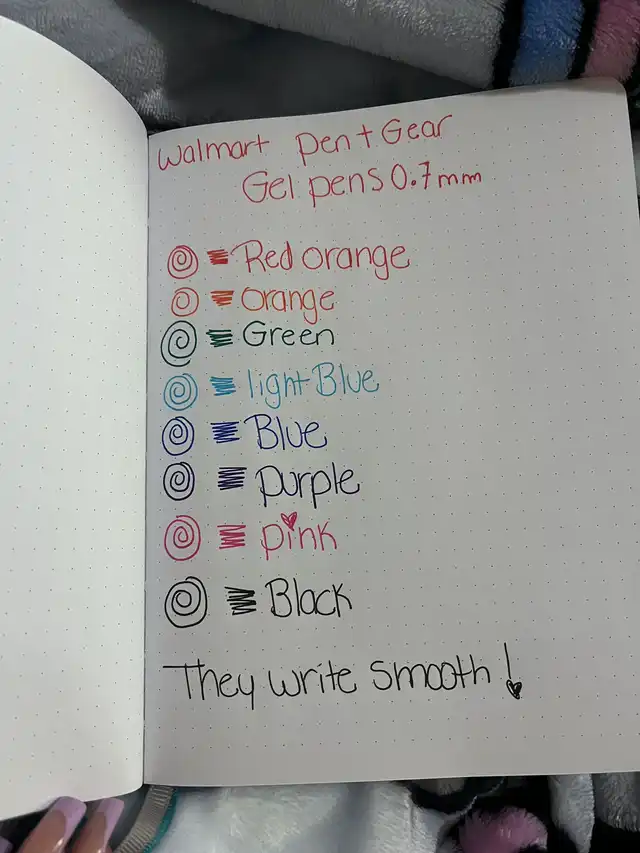 Walmart Pen + Gear
Gel pens 0.7mm
Red orange
Orange
Green
light Blue
Blue
purple
pink
Black
They write smooth!